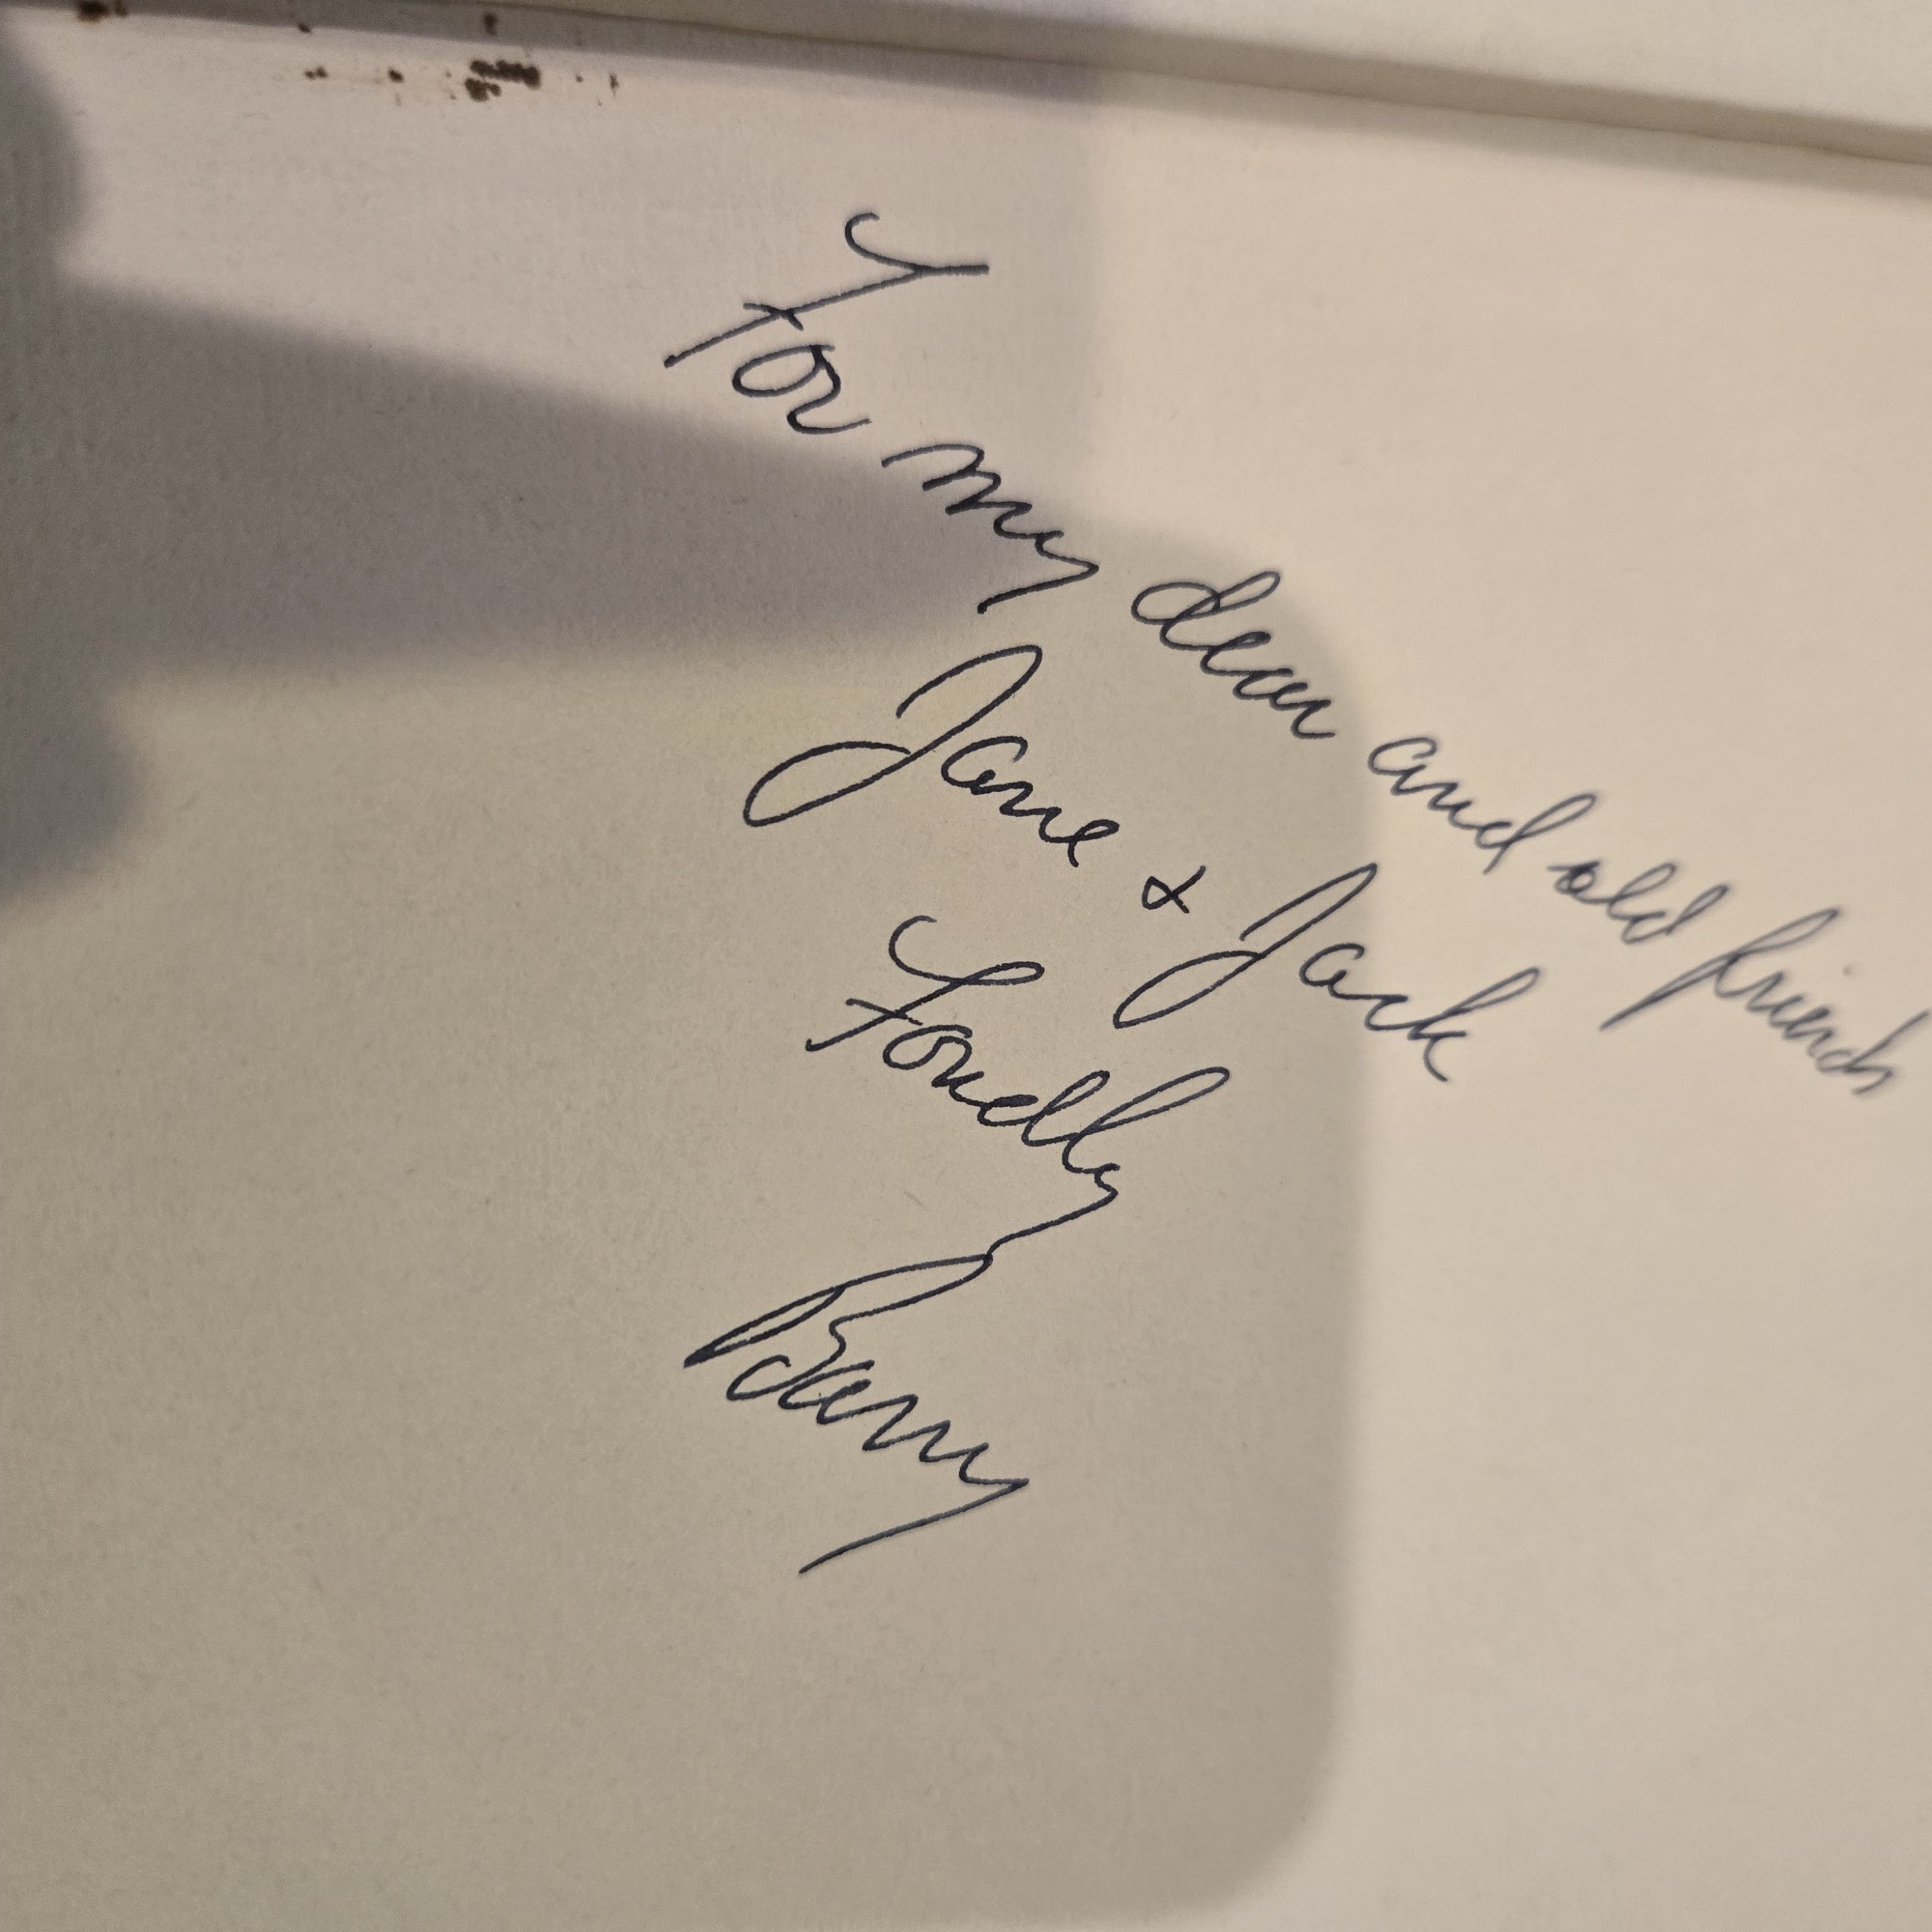 For my dear and old friends
Jane & Jack
Fondly
Barry